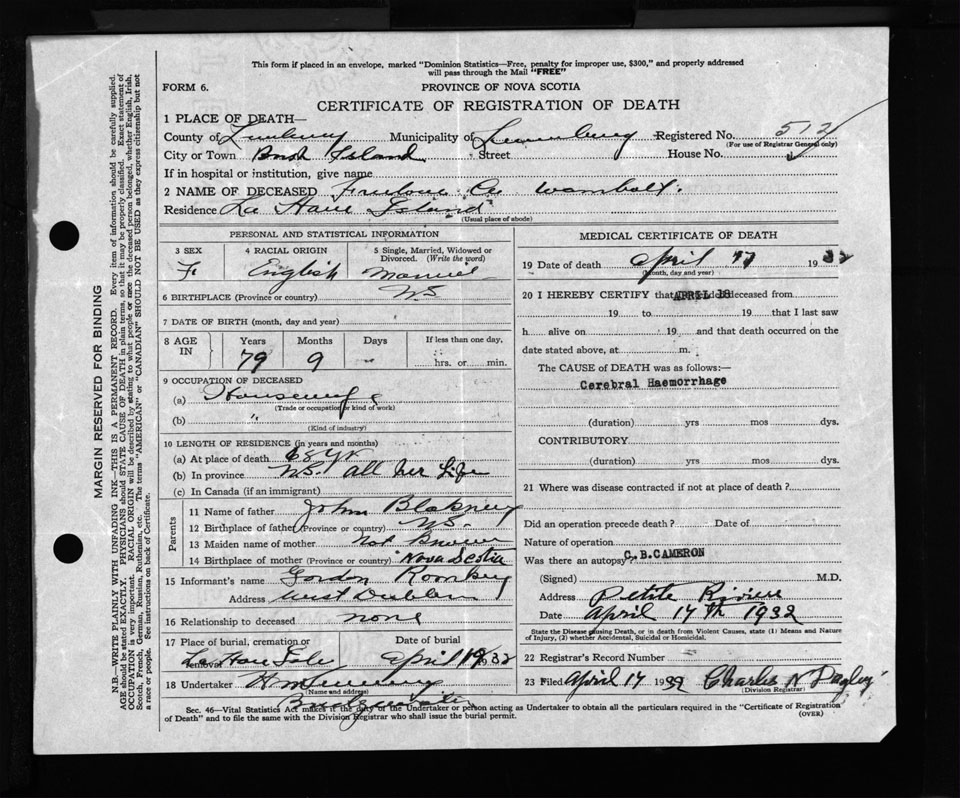 This form if placed in an envelope, marked "Dominion Statistics—Free, penalty for improper use, $300," and properly addressed
will pass through the Mail "FREE"
FORM 6.
PROVINCE OF NOVA SCOTIA
CERTIFICATE OF REGISTRATION OF DEATH
1 PLACE OF DEATH—
County of Lunenburg Municipality of Lunenburg Registered No. 512
(For use of Registrar General only)
City or Town Bush Island Street House No.
If in hospital or institution, give name
2 NAME OF DECEASED
Residence La Have Island
(Usual place of abode)
PERSONAL AND STATISTICAL INFORMATION
3 SEX 4 RACIAL ORIGIN 5 Single, Married, Widowed or Divorced. (Write the word)
F English Married
6 BIRTHPLACE (Province or country) N.S.
7 DATE OF BIRTH (month, day and year)
8 AGE IN Years Months Days If less than one day,
79 9 hrs. or min.
9 OCCUPATION OF DECEASED
(a) Housewife
(Trade or occupation or kind of work)
(b) "
(Kind of industry)
10 LENGTH OF RESIDENCE (in years and months)
(a) At place of death 68 yr
(b) In province N.S. all her Life
(c) In Canada (if an immigrant)
Parents
11 Name of father John Blakney
12 Birthplace of father (Province or country) N.S.
13 Maiden name of mother Not
14 Birthplace of mother (Province or country) Nova Scotia
15 Informant's name Gordon Romkey
Address West Dublin
16 Relationship to deceased none
17 Place of burial, cremation or removal Date of burial
La Have Isle April 19 1932
18 Undertaker
(Name and address)
MEDICAL CERTIFICATE OF DEATH
19 Date of death April 17 1932
(Month, day and year)
20 I HEREBY CERTIFY that APRIL 18 deceased from
19 to 19 that I last saw
h alive on 19 and that death occurred on the
date stated above, at m.
The CAUSE of DEATH was as follows:—
Cerebral Haemorrhage
(duration) yrs mos dys.
CONTRIBUTORY
(duration) yrs mos dys.
21 Where was disease contracted if not at place of death?
Did an operation precede death? Date of
Nature of operation
Was there an autopsy? C.B.CAMERON
(Signed) M.D.
Address Petite Riviere
Date April 17th 1932
State the Disease causing Death, or in death from Violent Causes, state (1) Means and Nature
of Injury, (2) whether Accidental, Suicidal or Homicidal.
22 Registrar's Record Number
23 Filed April 17 1932 Charles N
(Division Registrar)
Sec. 46—Vital Statistics Act makes it the duty of the Undertaker or person acting as Undertaker to obtain all the particulars required in the "Certificate of Registration
of Death" and to file the same with the Division Registrar who shall issue the burial permit.
(OVER)
MARGIN RESERVED FOR BINDING
N.B.—WRITE PLAINLY WITH UNFADING INK—THIS IS A PERMANENT RECORD. Every item of information should be carefully supplied.
AGE should be stated EXACTLY. PHYSICIANS should STATE CAUSE OF DEATH in plain terms, so that it may be properly classified. Exact statement of
OCCUPATION is very important. RACIAL ORIGIN will be described by stating to what people or race the deceased person belonged, whether English, Irish,
Scotch, French, German, Russian, Ruthenian, etc. The terms "AMERICAN" or "CANADIAN" SHOULD NOT BE USED as they express citizenship but not
a race or people. See instructions on back of Certificate.